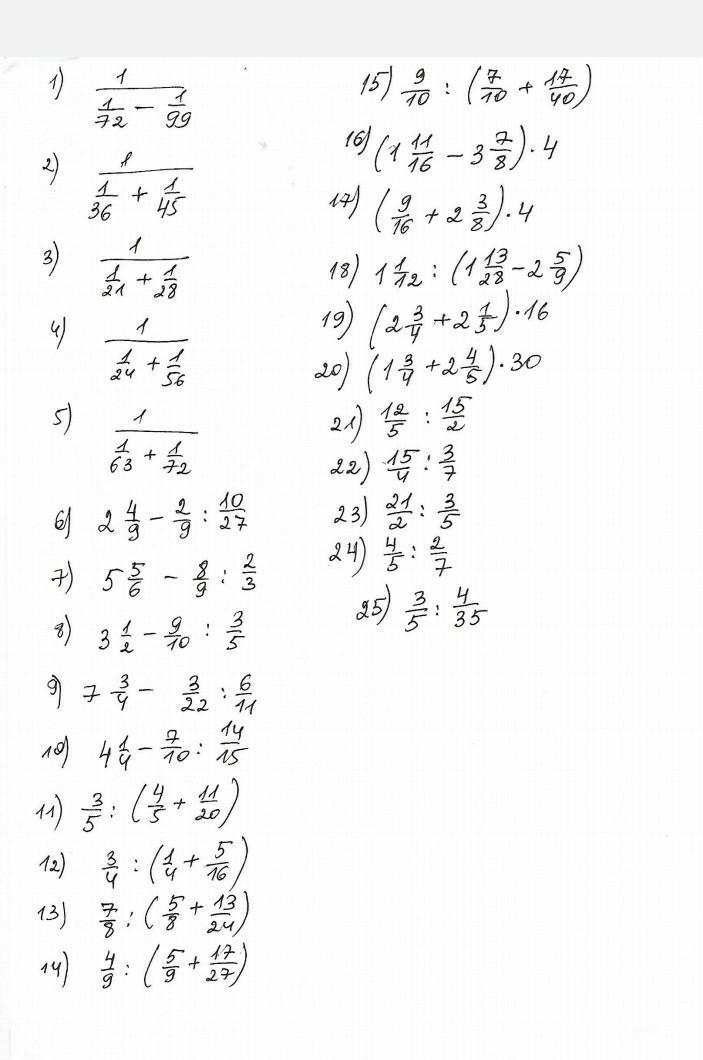 1) 1/(1/72 - 1/99)
2) 1/(1/36 + 1/45)
3) 1/(1/21 + 1/28)
4) 1/(1/24 + 1/56)
5) 1/(1/63 + 1/72)
6) 2 4/9 - 2/9 : 10/27
7) 5 5/6 - 8/9 : 2/3
8) 3 1/2 - 9/10 : 3/5
9) 7 3/4 - 3/22 : 6/11
10) 4 1/4 - 7/10 : 14/15
11) 3/5 : (4/5 + 11/20)
12) 3/4 : (1/4 + 5/16)
13) 7/8 : (5/8 + 13/24)
14) 4/9 : (5/9 + 17/27)
15) 9/10 : (7/10 + 17/40)
16) (1 11/16 - 3 7/8) · 4
17) (9/16 + 2 3/8) · 4
18) 1 1/12 : (1 13/28 - 2 5/9)
19) (2 3/4 + 2 1/5) · 16
20) (1 3/4 + 2 4/5) · 30
21) 12/5 : 15/2
22) 15/4 : 3/7
23) 21/2 : 3/5
24) 4/5 : 2/7
25) 3/5 : 4/35